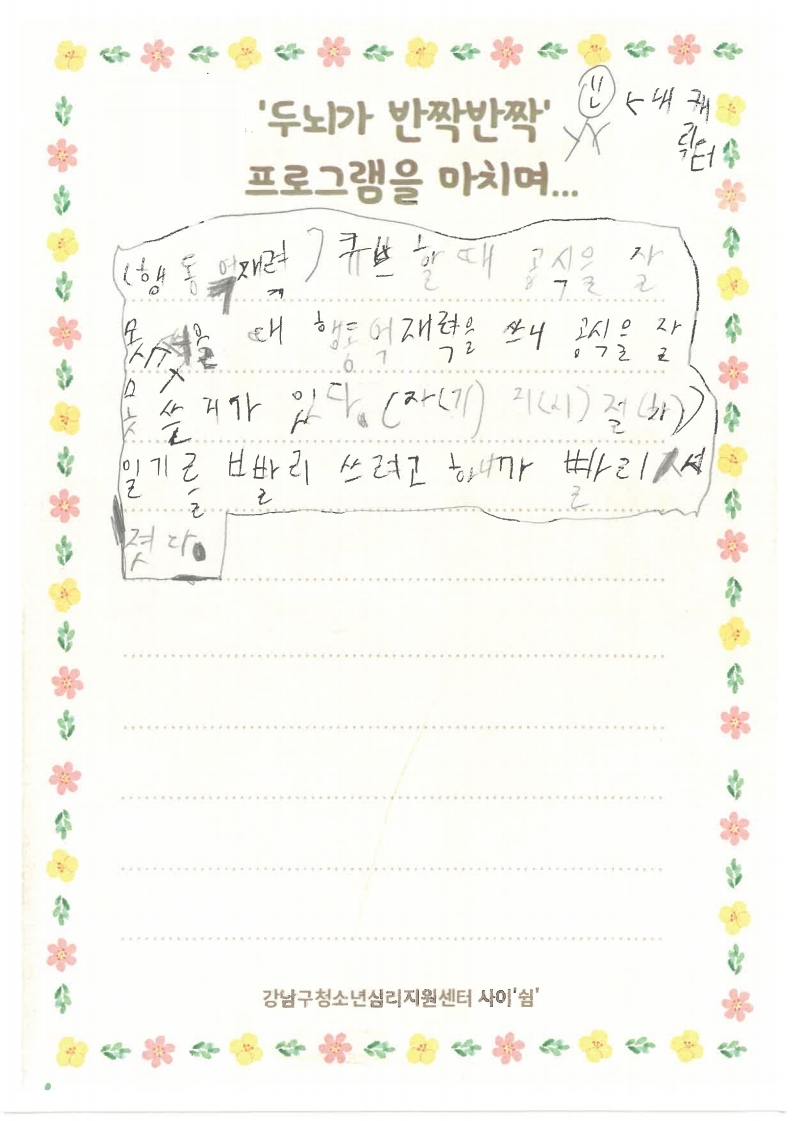 '두뇌가 반짝반짝'
프로그램을 마치며...
←내 캐
릭터
(행동억재력) 큐브 할 때 공식을 잘
못 쓸 때 행동억재력을 쓰니 공식을 잘
쓸 거가 있다. (자(기) 지(시) 절(차))
일기를 ㅂ빨리 쓰려고 하니까 빨리 써
졌다.
강남구청소년심리지원센터 사이'쉼'